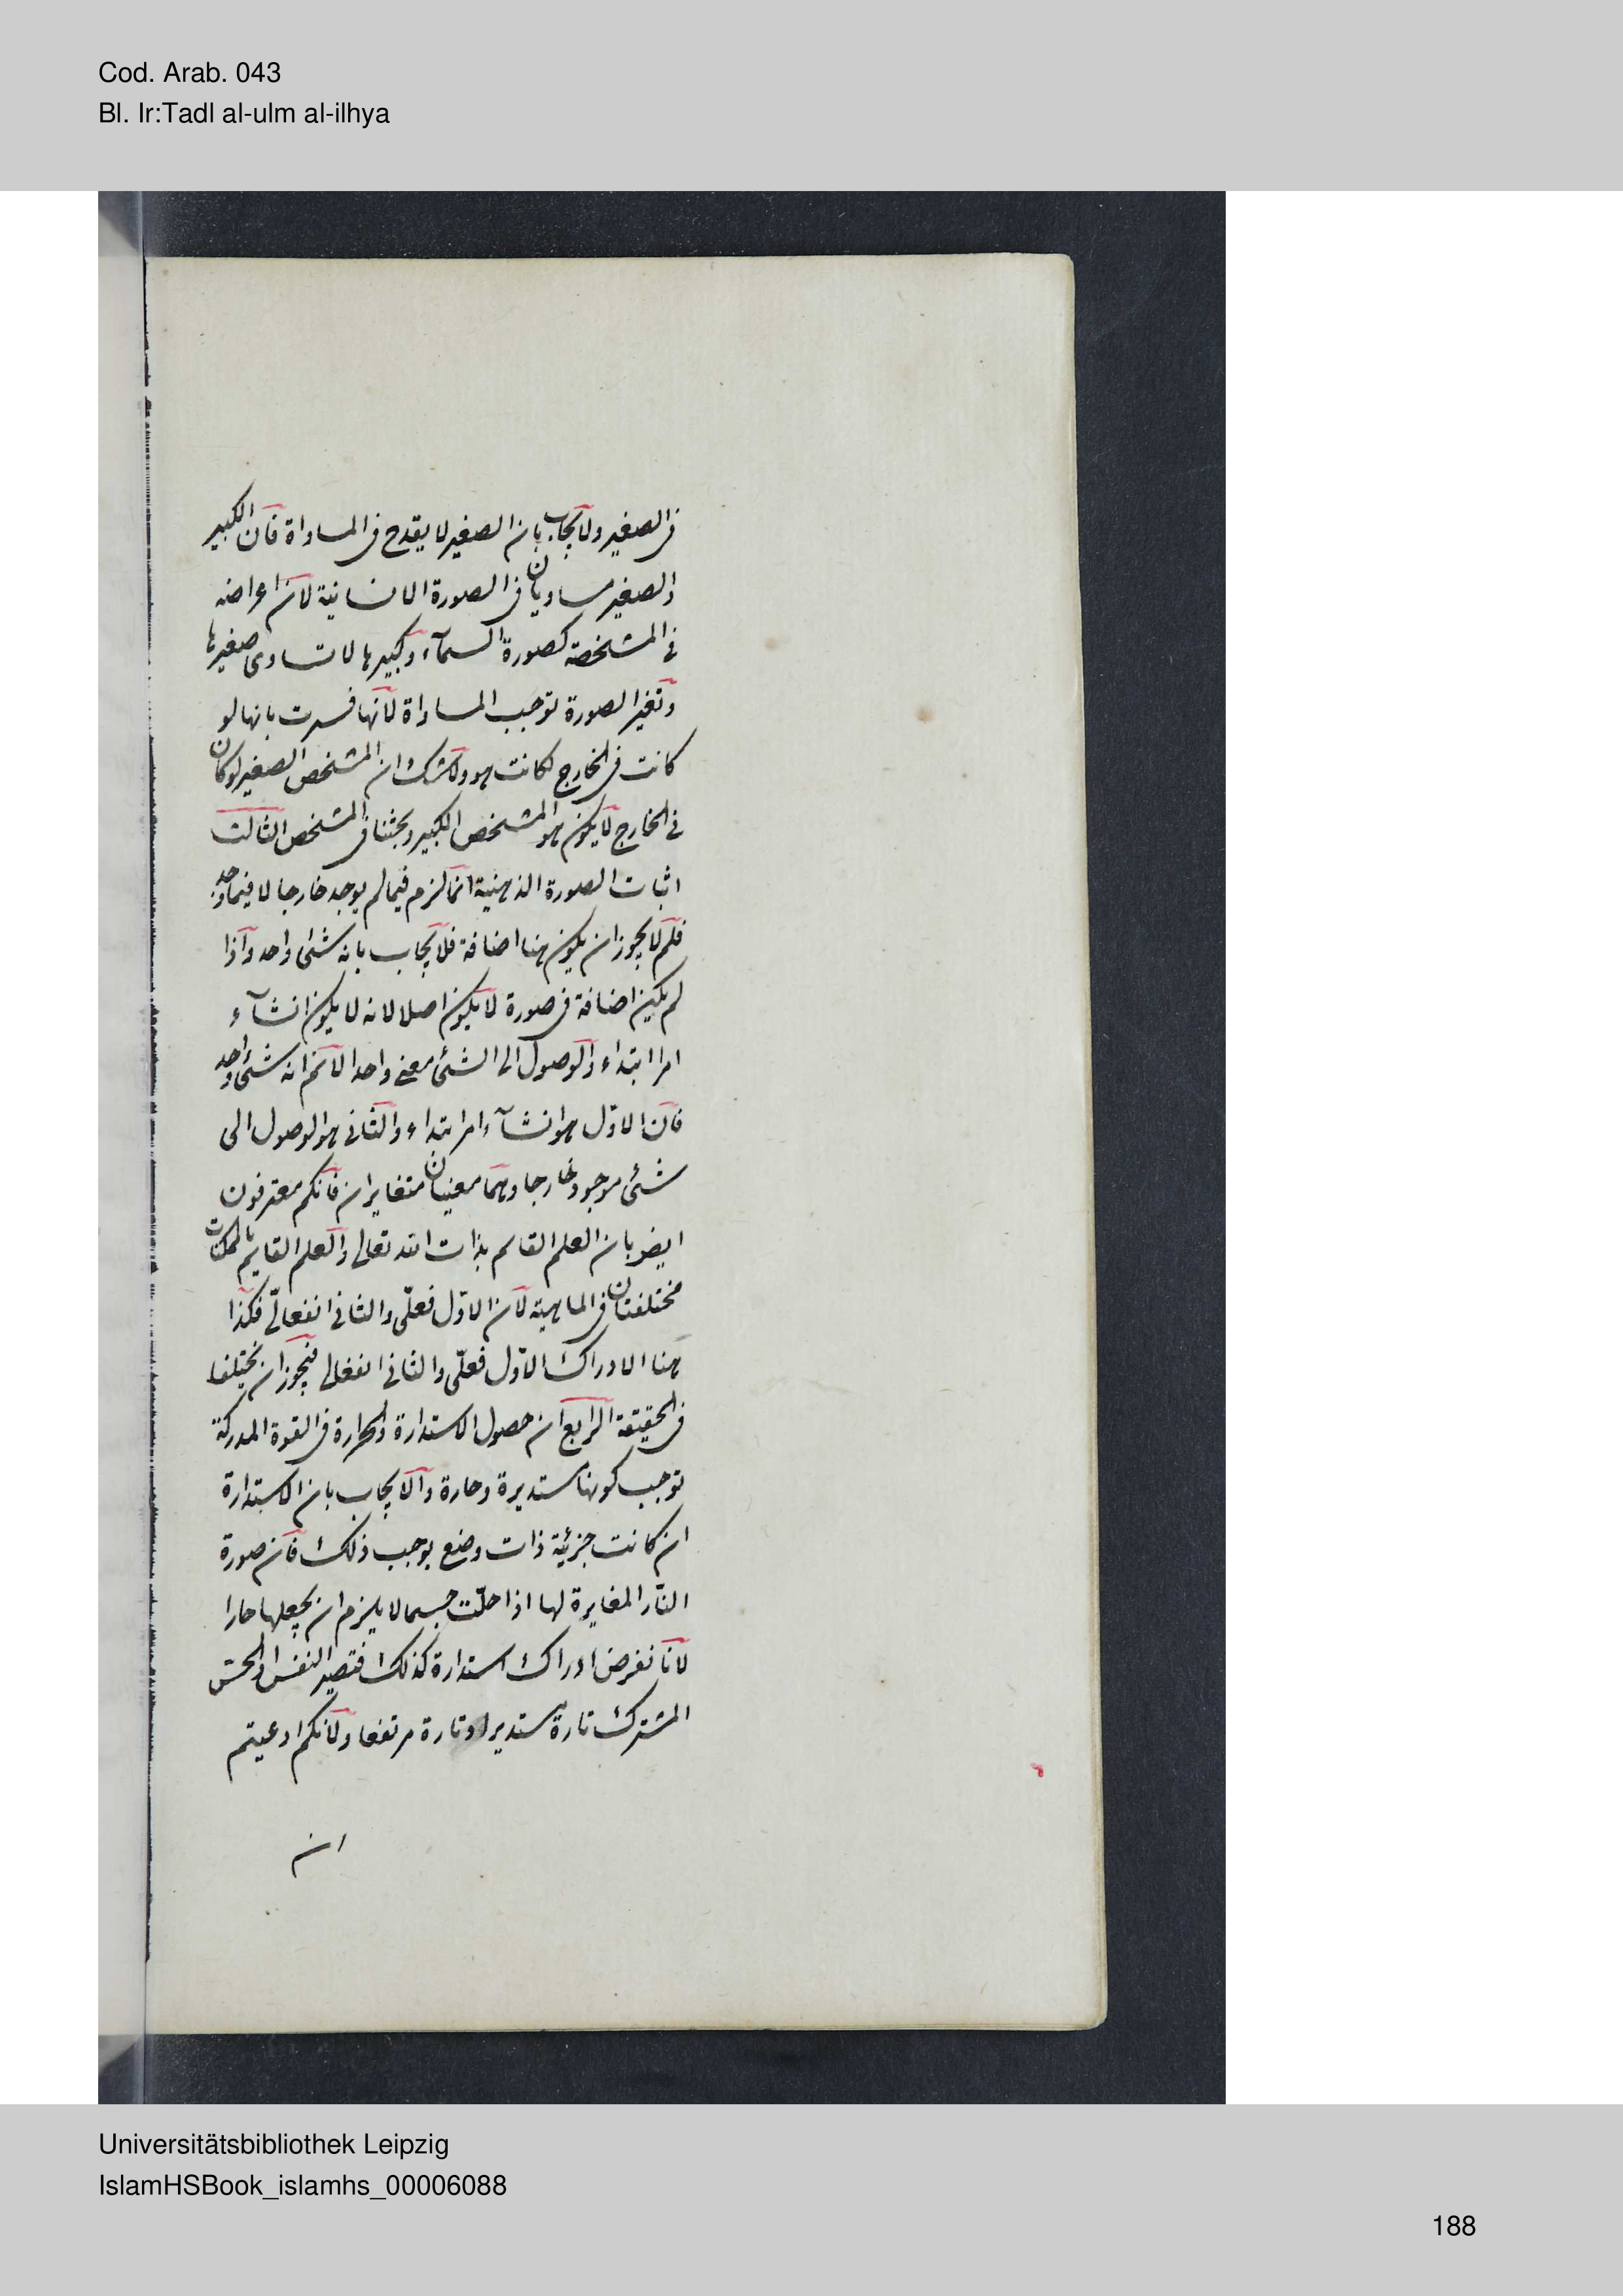 Cod. Arab. 043
Bl. Ir:Tadl al-ulm al-ilhya
فى الصغير ولا يجاب بان الصغير لا يقدح فى المساواة فان الكبير
والصغير مساويان فى الصورة الانسانية لان اعراضه
فى المشخصة كصورة السمآء وكبيرها لا تساوى صغيرها
وتغير الصورة توجب المساواة لانها فسرت بانها لو
كانت فى الخارج لكانت هو ولا شك ان المشخص الصغير لو كان
فى الخارج لا يكون هو المشخص الكبير وبحثنا فى المشخص الثالث
اثبات الصورة الذهنية انما لزم فيما لم يوجد خارجا لا فيما وجد
فلم لا يجوز ان يكون هنا اضافة فلا يجاب بانه شئ واحد واذا
لم يكن اضافة فى صورة لا يكون اصلا لانه لا يكون انشآء
امرا ابتداء والوصول الى الشئ معنى واحدا لا نم انه شئ واحد
فان الاول هو انشآء امر ابتداء والثانى هو الوصول الى
شئ موجود خارجا وهما معنيان متغايران فانكم معترفون
ايضو بان العلم القائم بذات الله تعالى والعلم القايم بالممكنات
مختلفتان فى الماهية لان الاول فعلى والثانى انفعالى فكذا
هنا الادراك الاول فعلى والثانى انفعالى فيجوز ان يختلفا
فى الحقيقة الرابع ان حصول الاستدارة والحرارة فى القوة المدركة
توجب كونها مستديرة وحارة والا يجاب بان الاستدارة
ان كانت جزئية ذات وضع يوجب ذلك فان صورة
النار المغايرة لها اذا حلت جسما لا يلزم ان يجعلها حارا
لانا نفرض ادراك استدارة كذلك فتصير النفس والحس
المشترك تارة مستديرا وتارة مرتفعا ولانكم ادعيتم
ان
Universitätsbibliothek Leipzig
IslamHSBook_islamhs_00006088
188